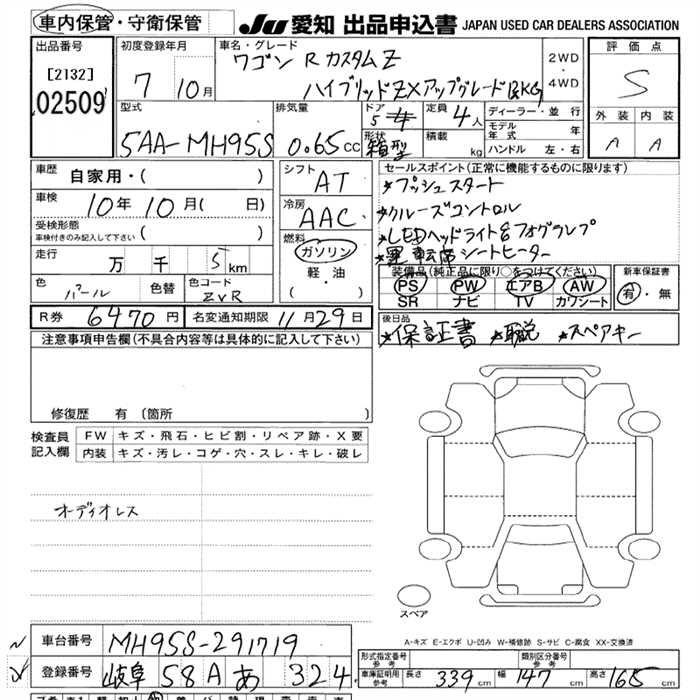 車内保管・守衛保管
JU 愛知 出品申込書 JAPAN USED CAR DEALERS ASSOCIATION
出品番号
[2132]
02509
初度登録年月
7 10月
車名・グレード
ワゴン R カスタム Z
ハイブリッド ZXアップグレード
2WD
・
4WD
評価点
S
外装 内装
A A
型式
5AA-MH95S
排気量
0.65cc
ドア
5 4
形状
箱型
定員
4人
積載
kg
ディーラー・並行
モデル年式 年
ハンドル 左・右
車歴
自家用・( )
車検
10年10月( 日)
受検形態
車検付きのみ記入して下さい ( )
走行
万 千 5km
色
パール
色替
色コード
ZVR
シフト
AT
冷房
AAC
燃料
ガソリン
・
軽・油
( )
セールスポイント(正常に機能するものに限ります)
★プッシュスタート
★クルーズコントロール
★LEDヘッドライト&フォグランプ
★運転席シートヒーター
装備品(純正品に限り○をつけてください)
PS PW エアB AW
SR ナビ TV カワシート
新車保証書
有・無
R券 6470円
名変通知期限 11月29日
後日品
★保証書 ★取説 ★スペアキー
注意事項申告欄(不具合内容等は具体的に記入して下さい)
修復歴 有(箇所 )
検査員記入欄
FW キズ・飛石・ヒビ割・リペア跡・X要
内装 キズ・汚レ・コゲ・穴・スレ・キレ・破レ
オーディオレス
スペア
A-キズ E-エクボ U-凹み W-補修跡 S-サビ C-腐食 XX-交換済
車台番号 MH95S-291719
登録番号 岐阜 58A あ 324
型式指定番号 参考
類別区分番号 参考
車庫証明用 参考 長さ 339cm 幅 147cm 高さ 165cm